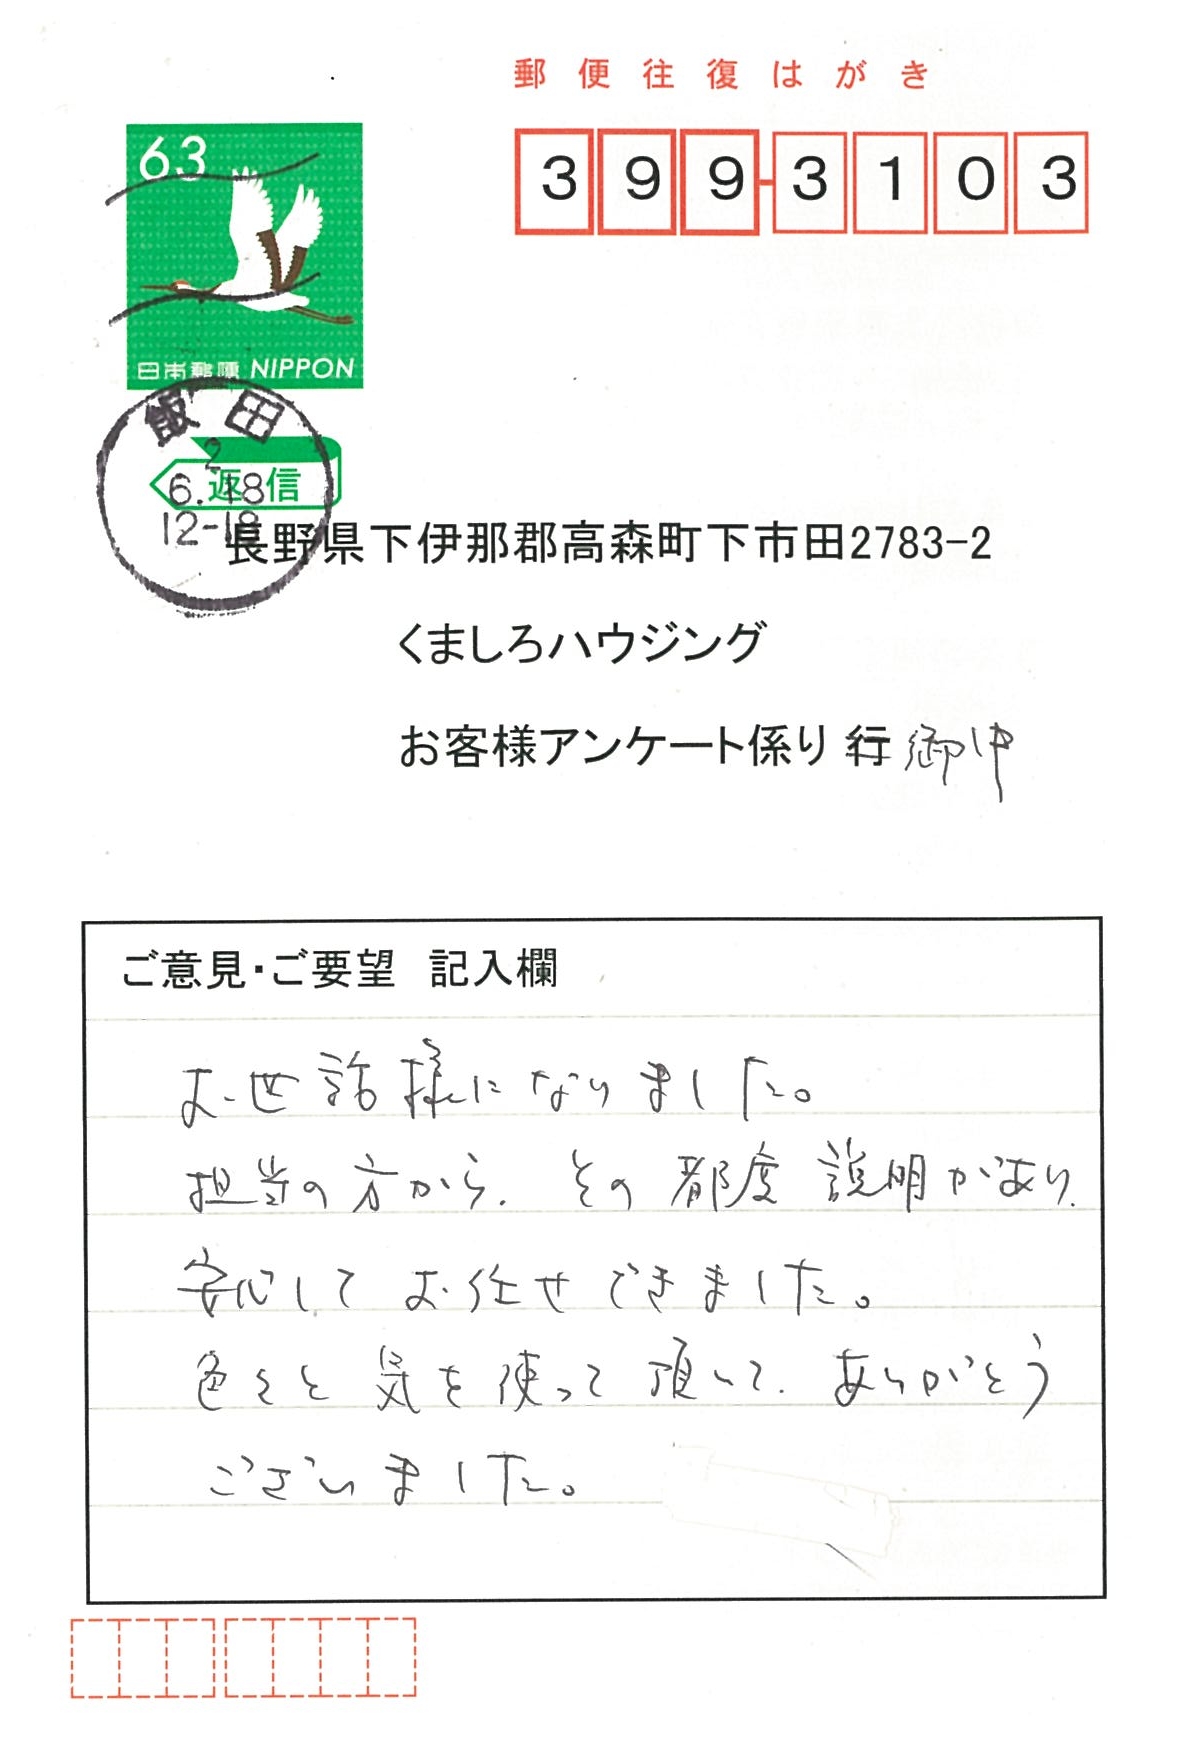 郵便往復はがき
63
399-3103
日本郵便 NIPPON
飯田
2
6.18
12-18
返信
長野県下伊那郡高森町下市田2783-2
くましろハウジング
お客様アンケート係り 行 御中
ご意見・ご要望 記入欄
お世話様になりました。
担当の方から、その都度 説明があり、
安心して お任せできました。
色々と 気を使って 頂いて、ありがとう
ございました。